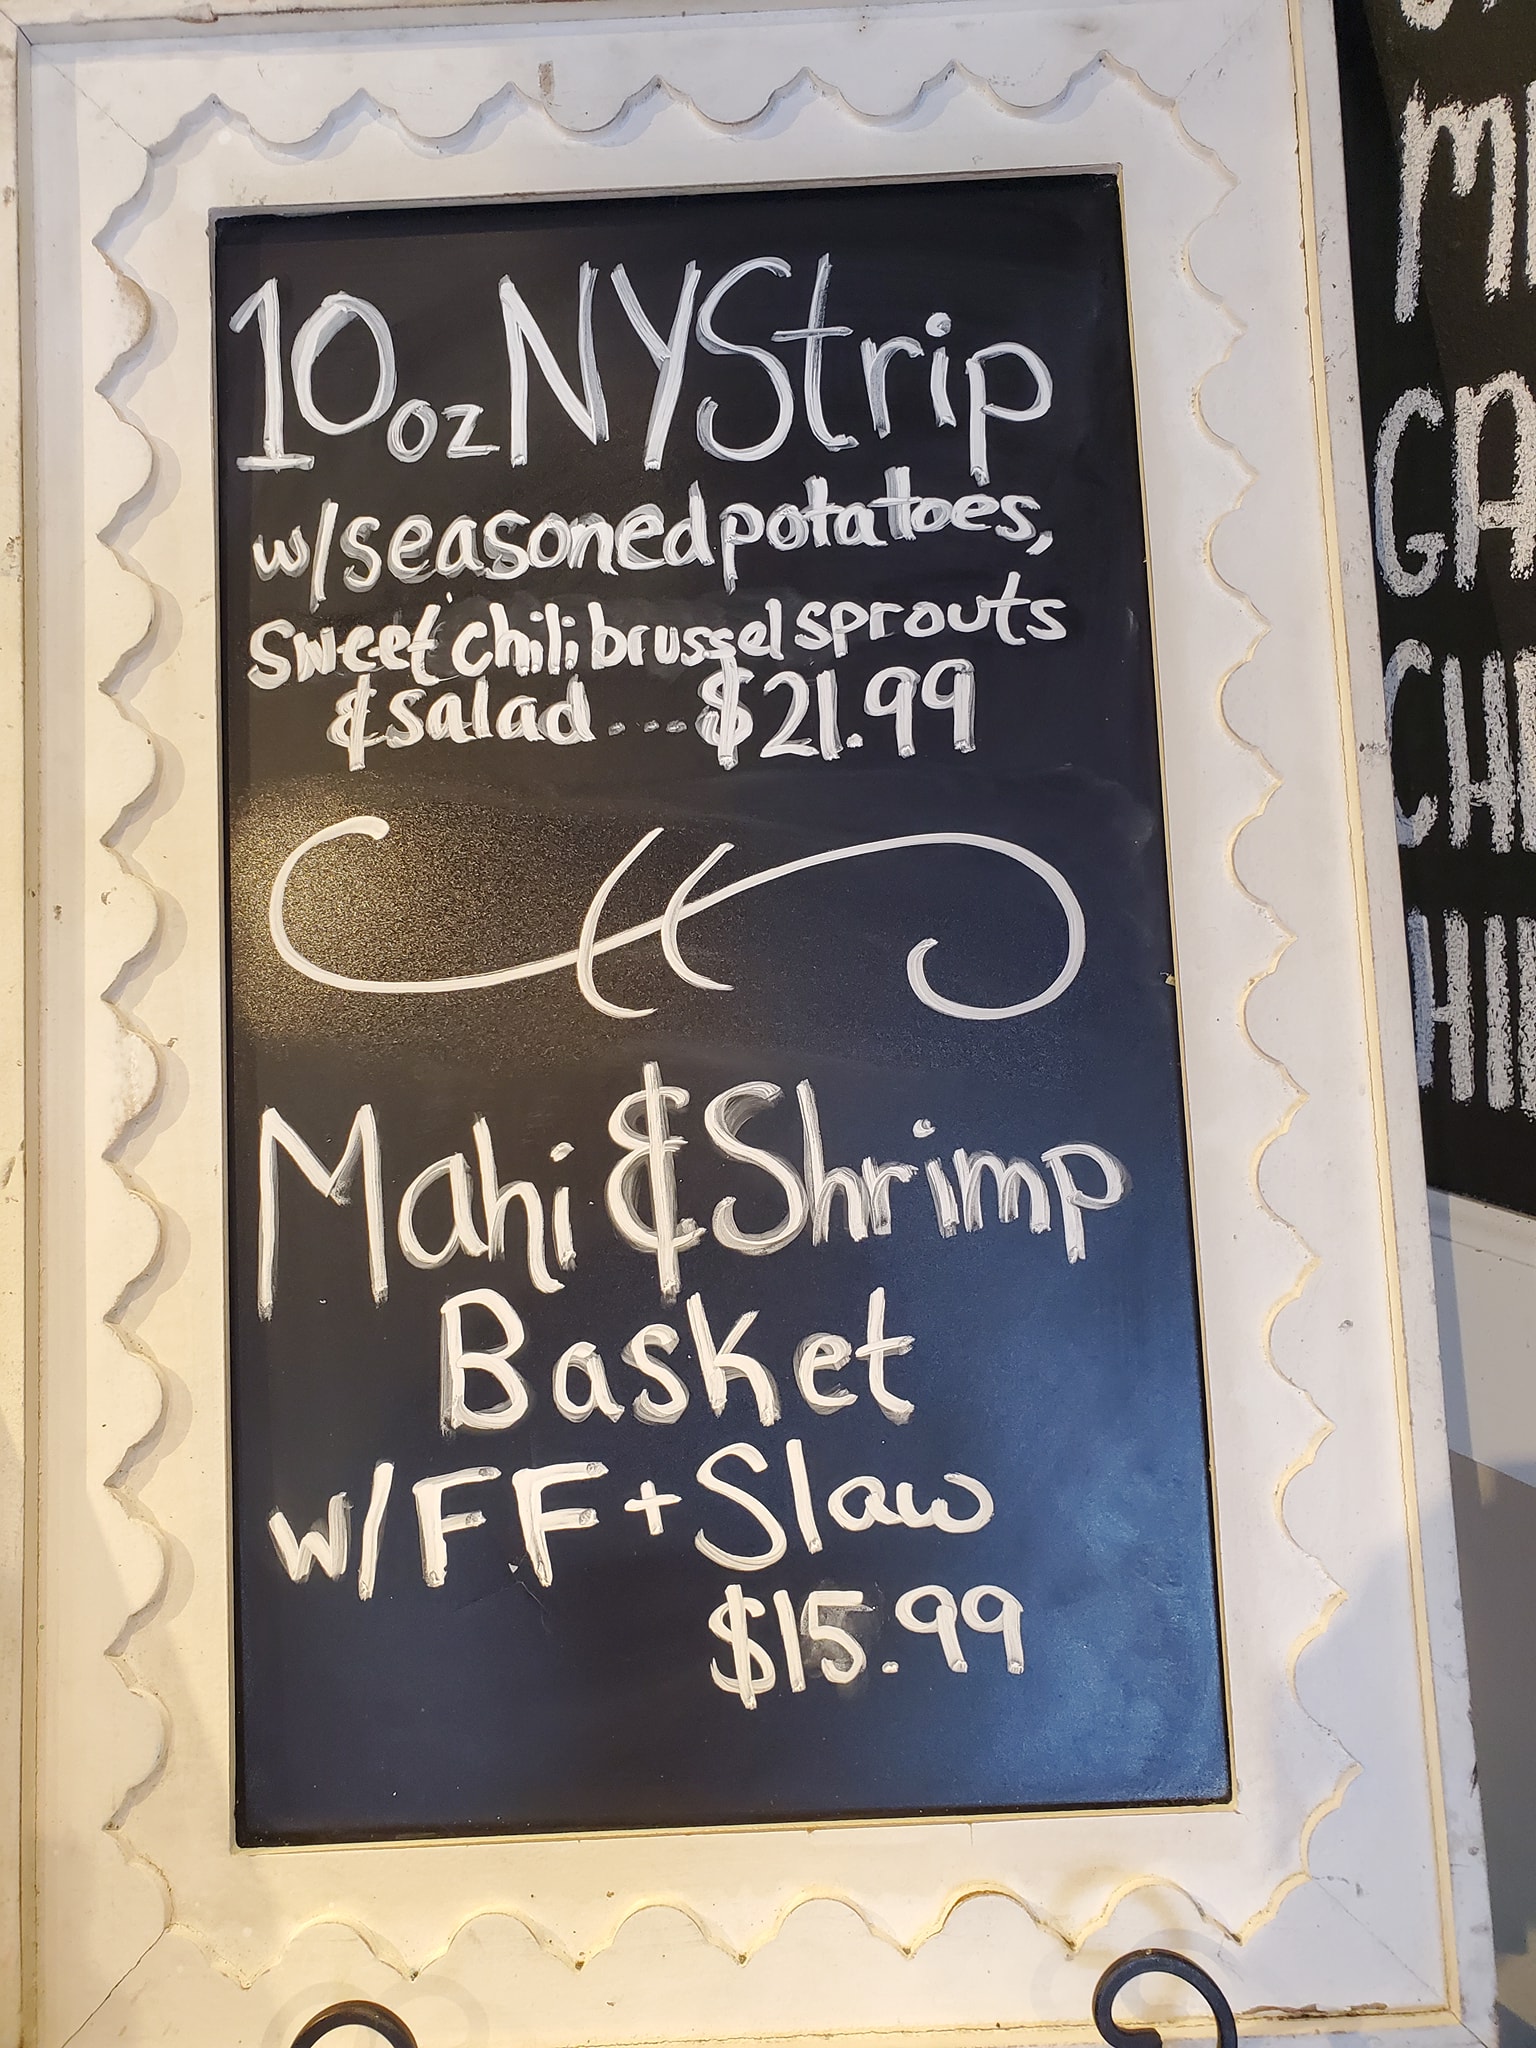 10oz NY Strip
w/seasoned potatoes,
Sweet chili brussel sprouts
& salad....$21.99
Mahi & Shrimp
Basket
w/FF + Slaw
$15.99
GA
CHI